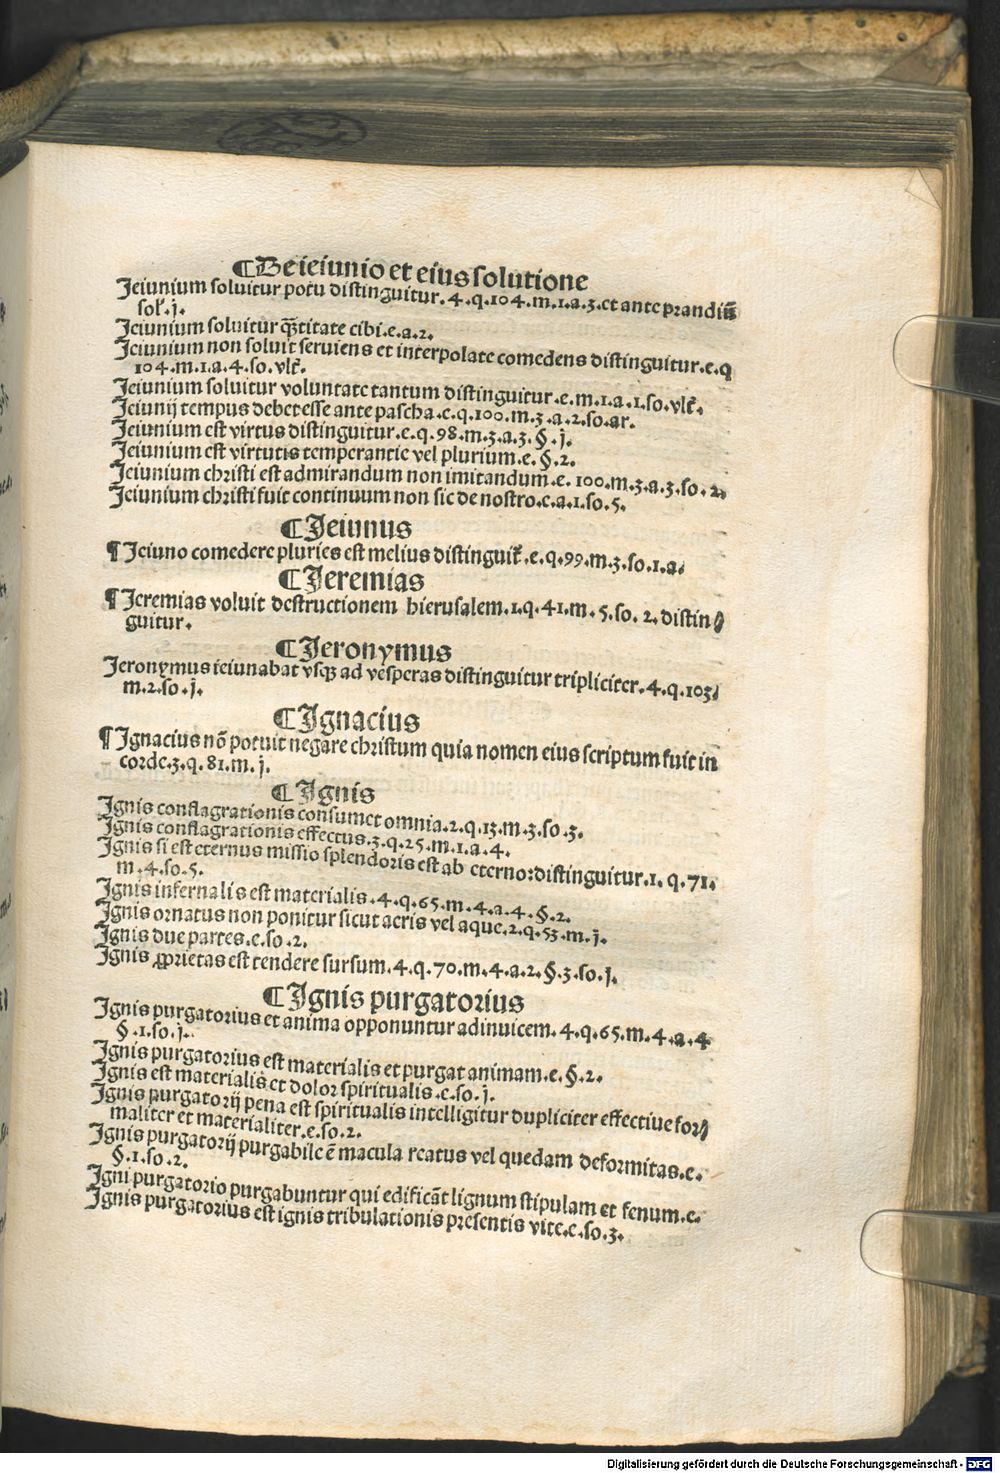 ¶De ieiunio et eius solutione
Jeiunium soluitur potu distinguitur.4.q.104.m.1.a.3.et ante prandiū
solꝭ.j.
Jeiunium soluitur q̄titate cibi.e.a.2.
Jeiunium non soluit seruiens et interpolate comedens distinguitur.e.q
104.m.1.a.4.so.vlt̄.
Jeiunium soluitur voluntate tantum distinguitur.e.m.1.a.1.so.vlt̄.
Jeiunij tempus debet esse ante pascha.e.q.100.m.3.a.2.so.ar.
Jeiunium est virtus distinguitur.e.q.98.m.3.a.3.§.j.
Jeiunium est virtutis temperantie vel plurium.e.§.2.
Jeiunium christi est admirandum non imitandum.e.100.m.3.a.3.so.2.
Jeiunium christi fuit continuum non sic de nostro.e.a.1.so.5.
¶Jeiunus
¶Jeiuno comedere pluries est melius distinguit̄.e.q.99.m.3.so.1.a.
¶Jeremias
¶Jeremias voluit destructionem hierusalem.1.q.41.m.5.so.2.distin⸗
guitur.
¶Jeronymus
Jeronymus ieiunabat vsqꝫ ad vesperas distinguitur tripliciter.4.q.103.
m.2.so.j.
¶Ignacius
¶Ignacius nō potuit negare christum quia nomen eius scriptum fuit in
corde.3.q.81.m.j.
¶Ignis
Ignis conflagrationis consumet omnia.2.q.13.m.3.so.3.
Ignis conflagrationis effectus.3.q.25.m.1.a.4.
Ignis si est eternus missio splendoris est ab eterno:distinguitur.1.q.71.
m.4.so.5.
Ignis infernalis est materialis.4.q.65.m.4.a.4.§.2.
Ignis ornatus non ponitur sicut aeris vel aque.2.q.53.m.j.
Ignis due partes.e.so.2.
Ignis ꝓprietas est tendere sursum.4.q.70.m.4.a.2.§.3.so.j.
¶Ignis purgatorius
Ignis purgatorius et anima opponuntur adinuicem.4.q.65.m.4.a.4
§.1.so.j.
Ignis purgatorius est materialis et purgat animam.e.§.2.
Ignis est materialis et dolor spiritualis.e.so.j.
Ignis purgatorij pena est spiritualis intelligitur dupliciter effectiue for⸗
maliter et materialiter.e.so.2.
Ignis purgatorij purgabile ē macula reatus vel quedam deformitas.e.
§.1.so.2.
Igni purgatorio purgabuntur qui edificāt lignum stipulam et fenum.e.
Ignis purgatorius est ignis tribulationis presentis vite.e.so.3.
Digitalisierung gefördert durch die Deutsche Forschungsgemeinschaft - DFG